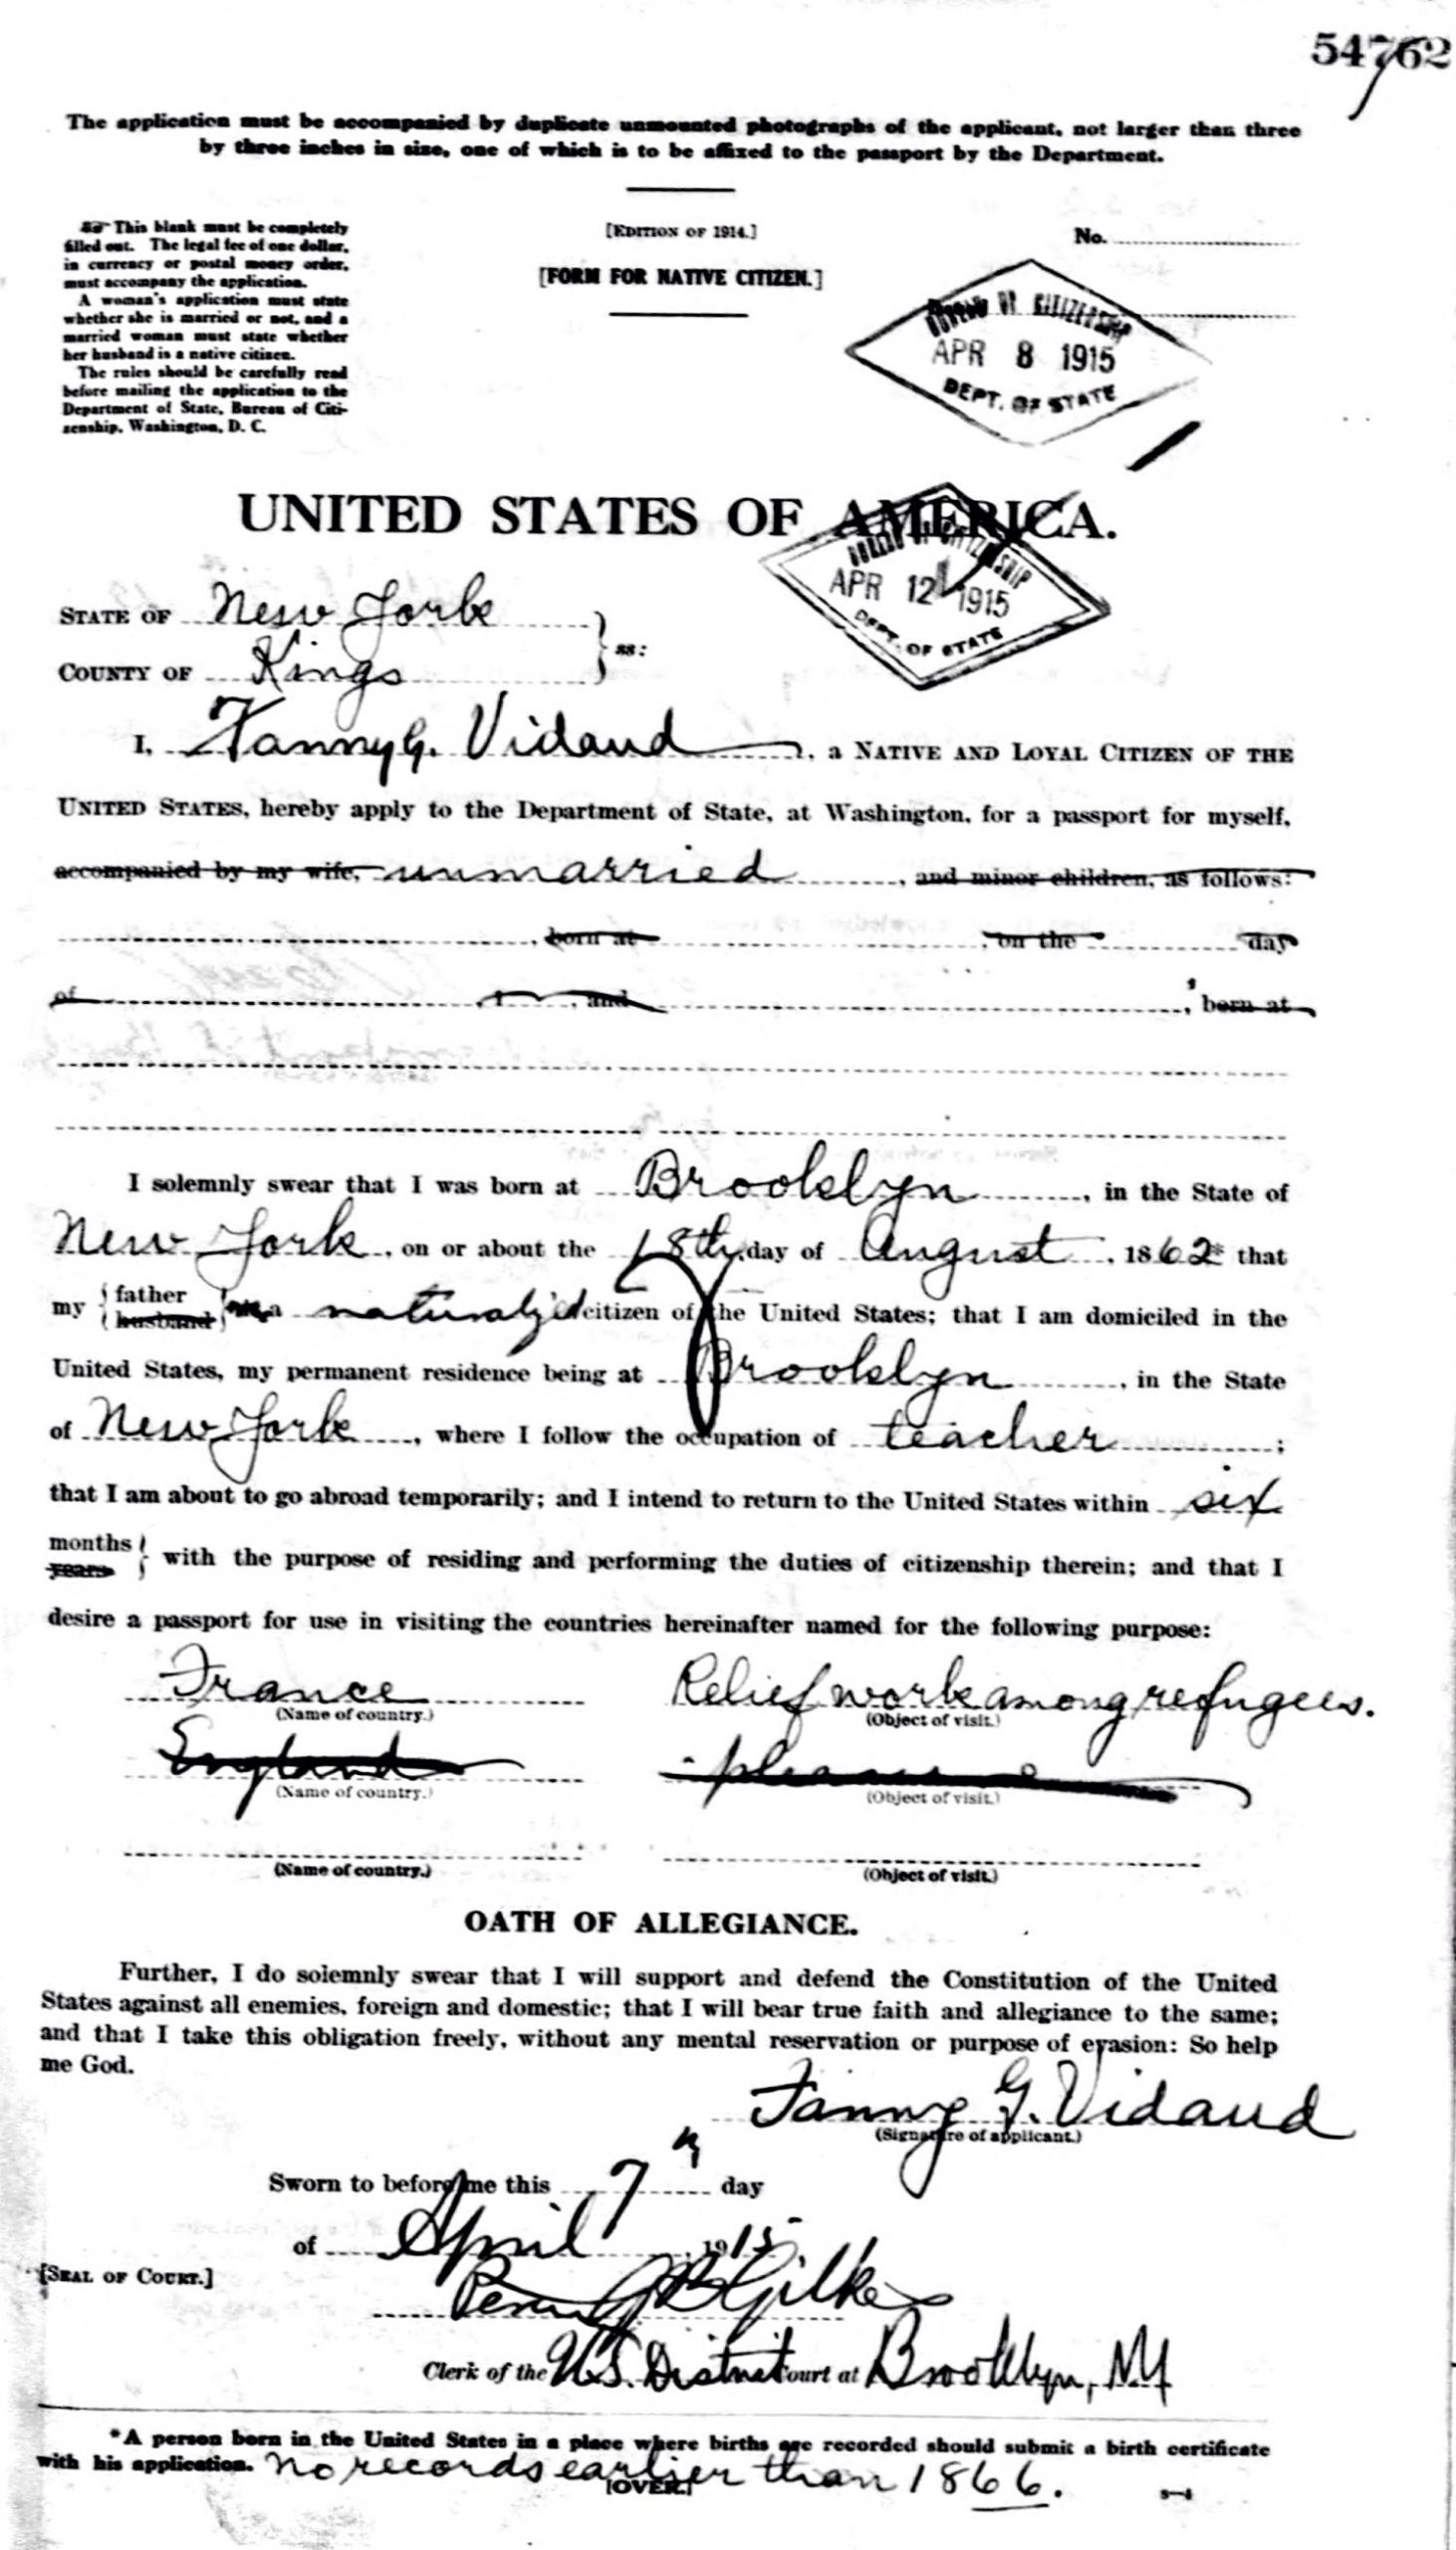 54762
The application must be accompanied by duplicate unmounted photographs of the applicant, not larger than three
by three inches in size, one of which is to be affixed to the passport by the Department.
This blank must be completely
filled out. The legal fee of one dollar,
in currency or postal money order,
must accompany the application.
A woman's application must state
whether she is married or not, and a
married woman must state whether
her husband is a native citizen.
The rules should be carefully read
before mailing the application to the
Department of State, Bureau of Citi-
zenship, Washington, D. C.
[EDITION OF 1914.]
[FORM FOR NATIVE CITIZEN.]
No.
BUREAU OF CITIZENSHIP
APR 8 1915
DEPT. OF STATE
UNITED STATES OF AMERICA.
BUREAU OF CITIZENSHIP
APR 12 1915
DEPT. OF STATE
STATE OF New York
COUNTY OF Kings
ss:
I, Fanny G. Vidaud, a NATIVE AND LOYAL CITIZEN OF THE
UNITED STATES, hereby apply to the Department of State, at Washington, for a passport for myself,
accompanied by my wife, unmarried, and minor children, as follows:
, born at , on the day
of , 1 , and , born at
I solemnly swear that I was born at Brooklyn, in the State of
New York, on or about the 18th day of August, 1862* that
my { father husband } a naturalized citizen of the United States; that I am domiciled in the
United States, my permanent residence being at Brooklyn, in the State
of New York, where I follow the occupation of teacher;
that I am about to go abroad temporarily; and I intend to return to the United States within six
months years } with the purpose of residing and performing the duties of citizenship therein; and that I
desire a passport for use in visiting the countries hereinafter named for the following purpose:
France Relief work among refugees.
(Name of country.) (Object of visit.)
England pleasure
(Name of country.) (Object of visit.)
(Name of country.) (Object of visit.)
OATH OF ALLEGIANCE.
Further, I do solemnly swear that I will support and defend the Constitution of the United
States against all enemies, foreign and domestic; that I will bear true faith and allegiance to the same;
and that I take this obligation freely, without any mental reservation or purpose of evasion: So help
me God.
Fanny G. Vidaud
(Signature of applicant.)
Sworn to before me this 7 day
of April, 1915
[SEAL OF COURT.]
Percy G B Gilkes
Clerk of the U.S. District Court at Brooklyn, NY
*A person born in the United States in a place where births are recorded should submit a birth certificate
with his application. No records earlier than 1866.
[OVER.]